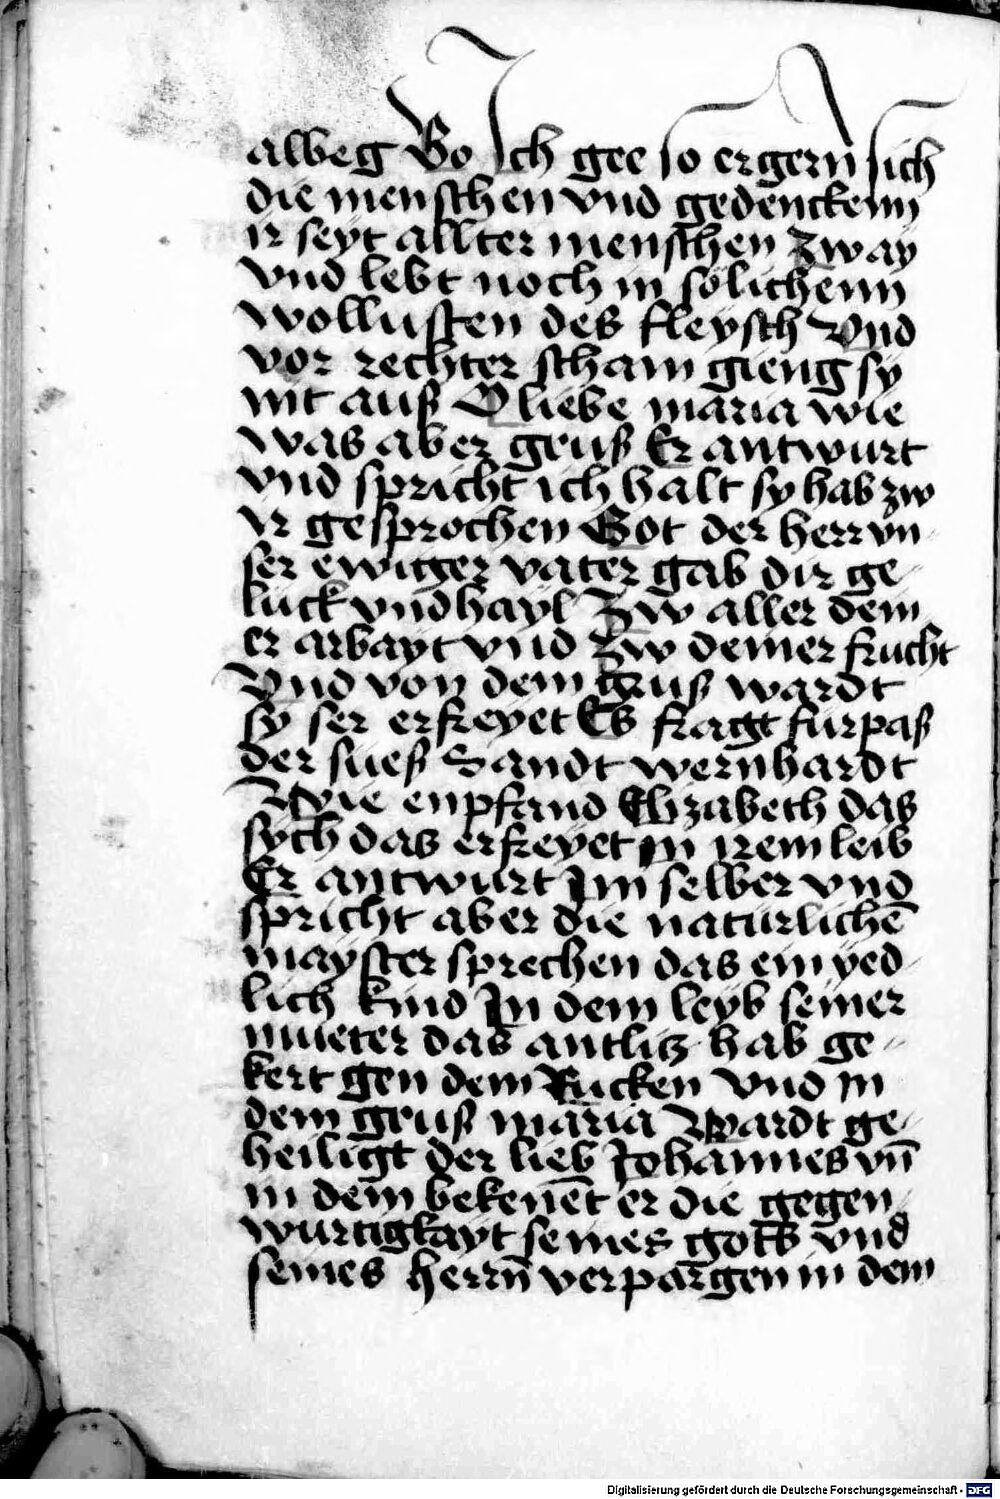 albeg Wo Ich gee so ergern sich
die menschen vnd gedenckenn
ir seyt allter menschen zway
vnd lebt noch in sölichenn
wollusten des fleysch Vnd
vor rechter scham gieng sy
nit auß O liebe maria wie
was aber gruß Er antwurt
vnd spricht ich halt sy hab zw
ir gesprochen Got der herr vn-
ser ewiger vater gab dir ge-
luck vnd hayl Zw aller dem
er arbayt vnd Zw deiner frucht
Vnd von dem gruß wardt
sy ser erfreyet Es fragt fürpaß
der sueß Sandt wernhardt
Wie enpfand Elizabeth das
sych das erfreyet In irem leib
Er antwurt Im selber vnd
spricht aber die natürlichē
mayster sprechen das ein yed-
lich kind In dem leyb seiner
mueter das antlitz hab ge-
kert gen dem Rucken Vnd in
dem gruß maria Wardt ge-
heiligt der lieb Johannes vn̄
in dem bekenēt er die gegen-
wurtigkayt seines gotts vnd
seines herrn̄ verpargen in dem
Digitalisierung gefördert durch die Deutsche Forschungsgemeinschaft - DFG